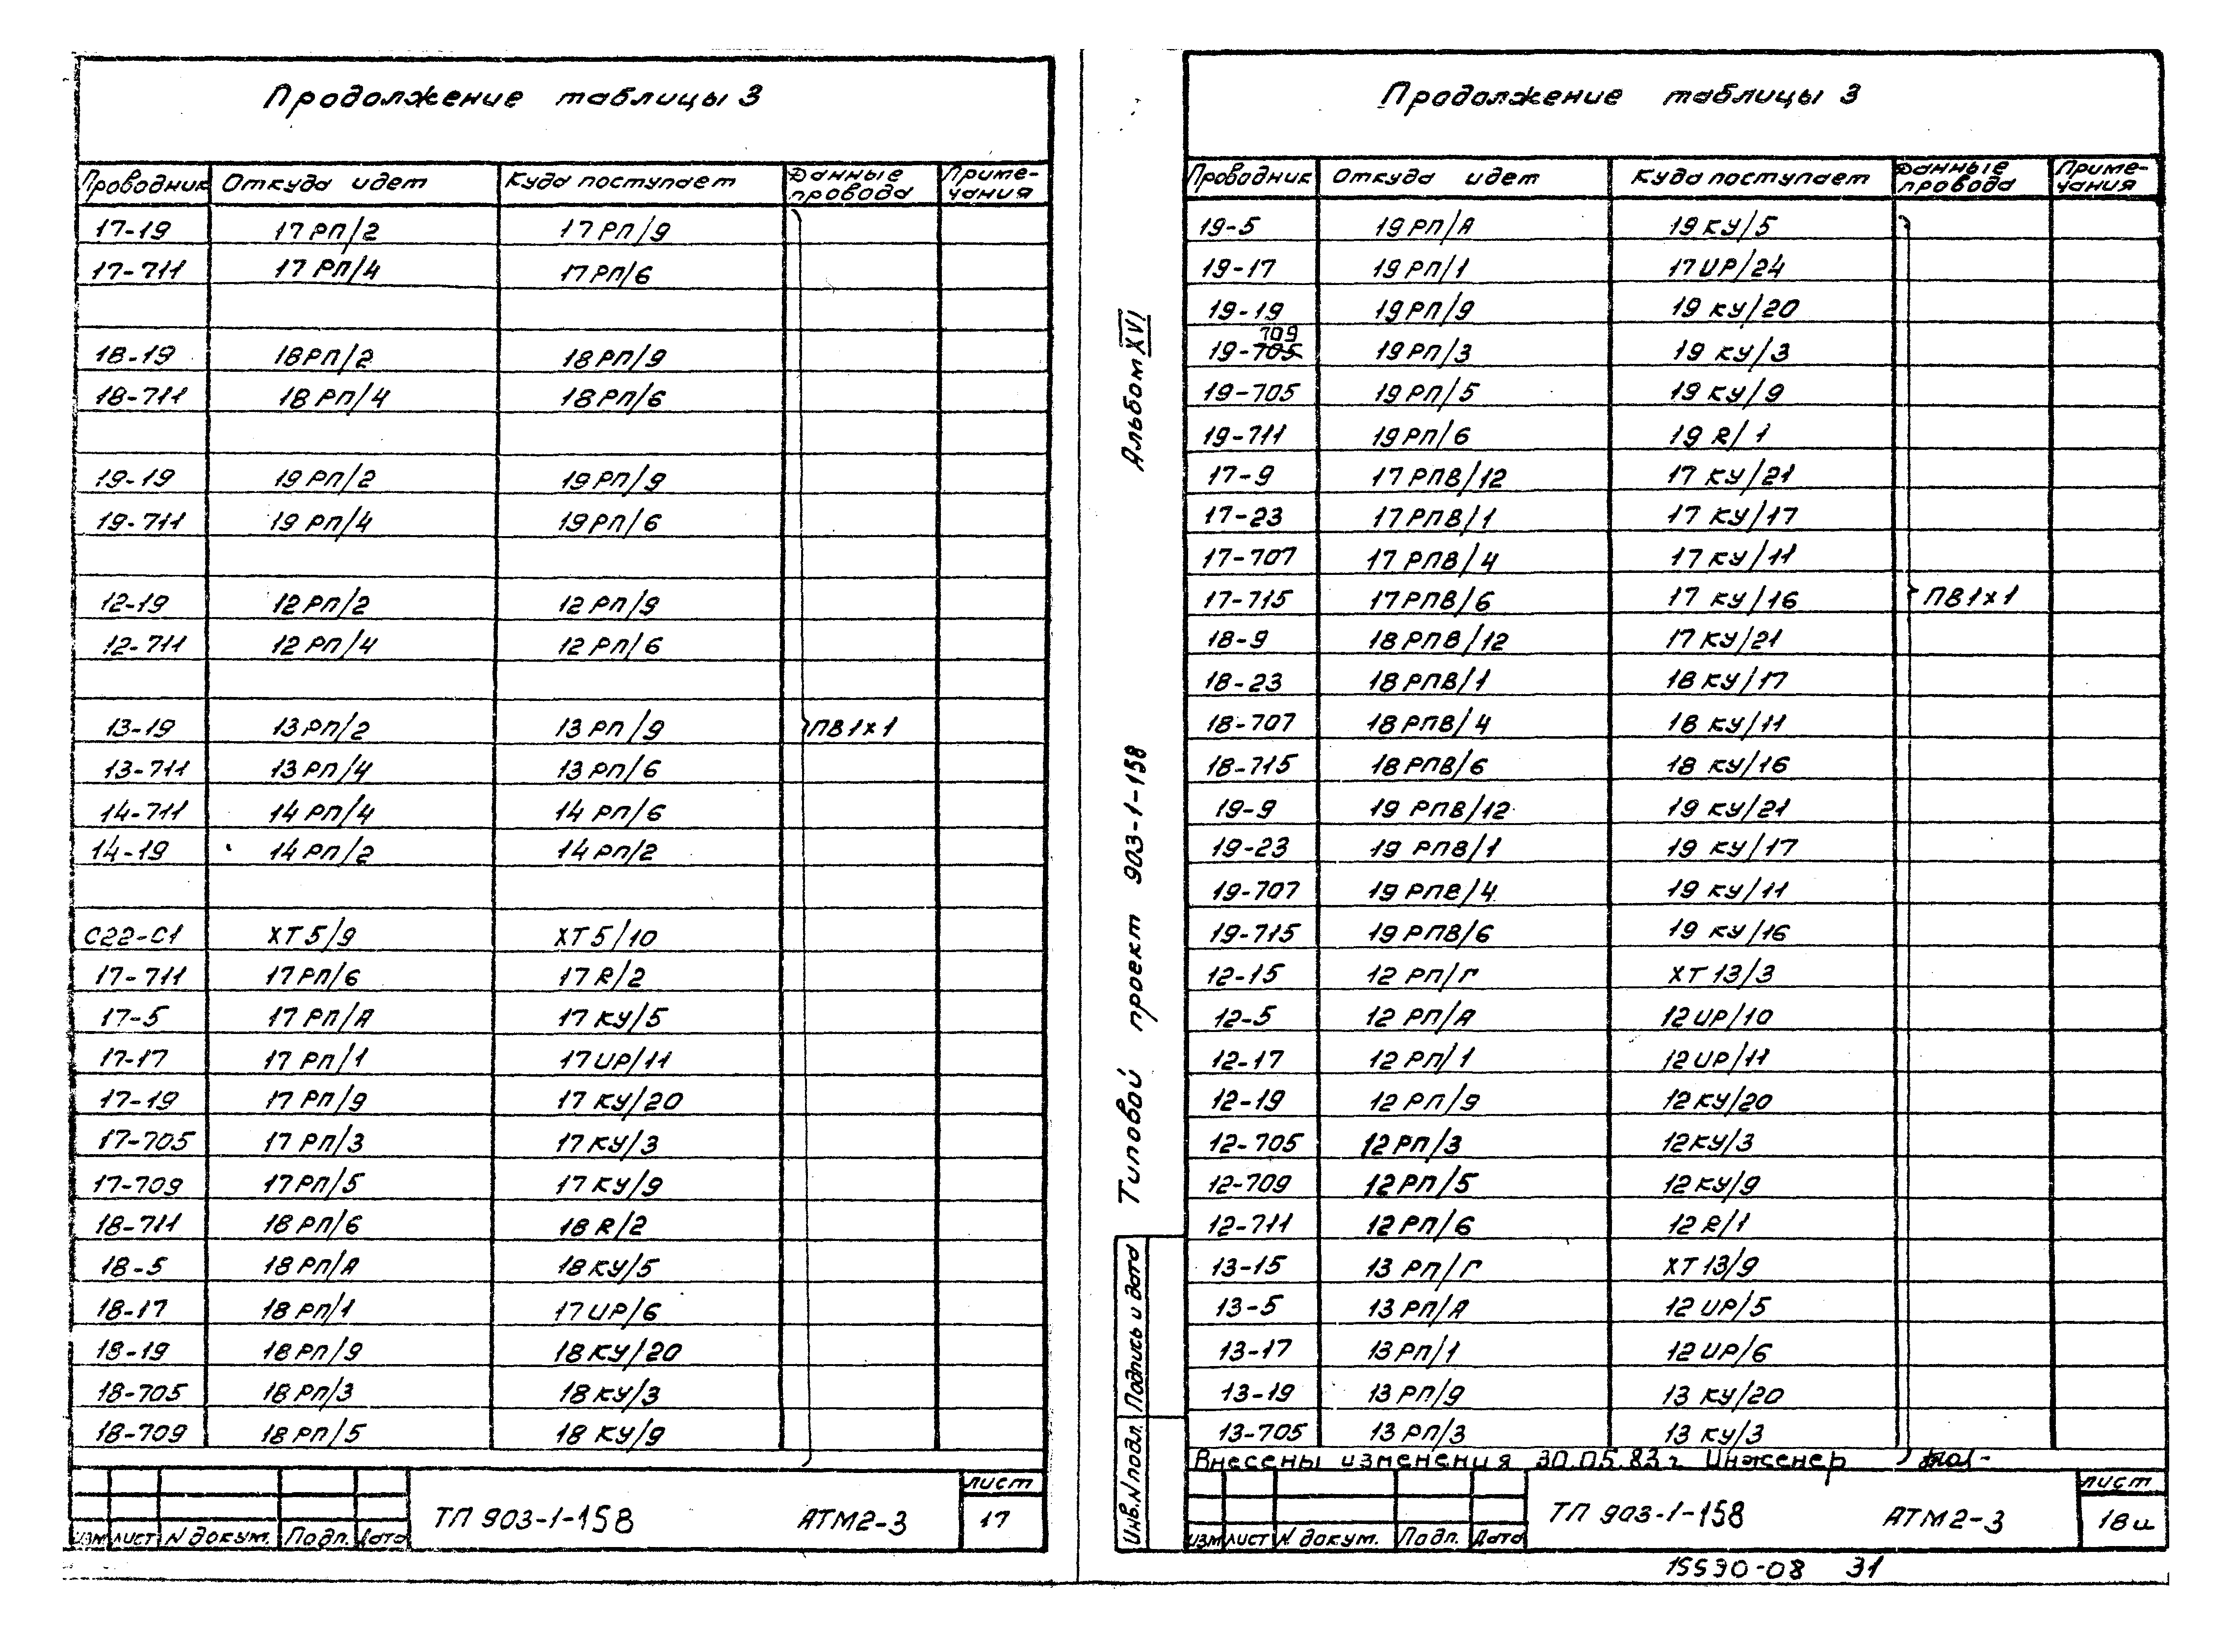 Продолжение таблицы 3
Проводник Откуда идет Куда поступает Данные провода Приме-чания
17-19 17РП/2 17РП/9
17-711 17РП/4 17РП/6
18-19 18РП/2 18РП/9
18-711 18РП/4 18РП/6
19-19 19РП/2 19РП/9
19-711 19РП/4 19РП/6
12-19 12РП/2 12РП/9
12-711 12РП/4 12РП/6
13-19 13РП/2 13РП/9 ПВ1х1
13-711 13РП/4 13РП/6
14-711 14РП/4 14РП/6
14-19 14РП/2 14РП/2
С22-С1 ХТ5/9 ХТ5/10
17-711 17РП/6 17R/2
17-5 17РП/А 17КУ/5
17-17 17РП/1 17UP/11
17-19 17РП/9 17КУ/20
17-705 17РП/3 17КУ/3
17-709 17РП/5 17КУ/9
18-711 18РП/6 18R/2
18-5 18РП/А 18КУ/5
18-17 18РП/1 17UP/6
18-19 18РП/9 18КУ/20
18-705 18РП/3 18КУ/3
18-709 18РП/5 18КУ/9
Изм Лист N докум. Подп. Дата
ТП 903-1-158 АТМ2-3 Лист 17
Альбом XVI
Типовой проект 903-1-158
Инв.N подл. Подпись и дата
Продолжение таблицы 3
Проводник Откуда идет Куда поступает Данные провода Приме-чания
19-5 19РП/А 19КУ/5
19-17 19РП/1 17UP/24
19-19 19РП/9 19КУ/20
709
19-705 19РП/3 19КУ/3
19-705 19РП/5 19КУ/9
19-711 19РП/6 19R/1
17-9 17РПВ/12 17КУ/21
17-23 17РПВ/1 17КУ/17
17-707 17РПВ/4 17КУ/11
17-715 17РПВ/6 17КУ/16 ПВ1х1
18-9 18РПВ/12 17КУ/21
18-23 18РПВ/1 18КУ/17
18-707 18РПВ/4 18КУ/11
18-715 18РПВ/6 18КУ/16
19-9 19РПВ/12 19КУ/21
19-23 19РПВ/1 19КУ/17
19-707 19РПВ/4 19КУ/11
19-715 19РПВ/6 19КУ/16
12-15 12РП/Г ХТ13/3
12-5 12РП/А 12UP/10
12-17 12РП/1 12UP/11
12-19 12РП/9 12КУ/20
12-705 12РП/3 12КУ/3
12-709 12РП/5 12КУ/9
12-711 12РП/6 12R/1
13-15 13РП/Г ХТ13/9
13-5 13РП/А 12UP/5
13-17 13РП/1 12UP/6
13-19 13РП/9 13КУ/20
13-705 13РП/3 13КУ/3
Внесены изменения 30.05.83г Инженер
Изм Лист N докум. Подп. Дата
ТП 903-1-158 АТМ2-3 Лист 18и
15530-08 31